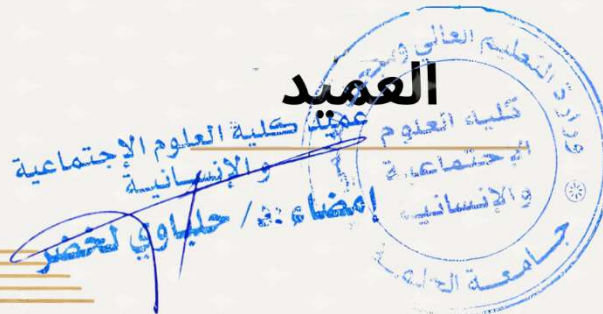 العميد
عميد كلية العلوم الإجتماعية
والإنسانية
إمضاء :د/ حلباوي لخضر
وزارة التعليم العالي و
كلية العلوم
الإجتماعية
والإنسانية
جامعة الجلفة